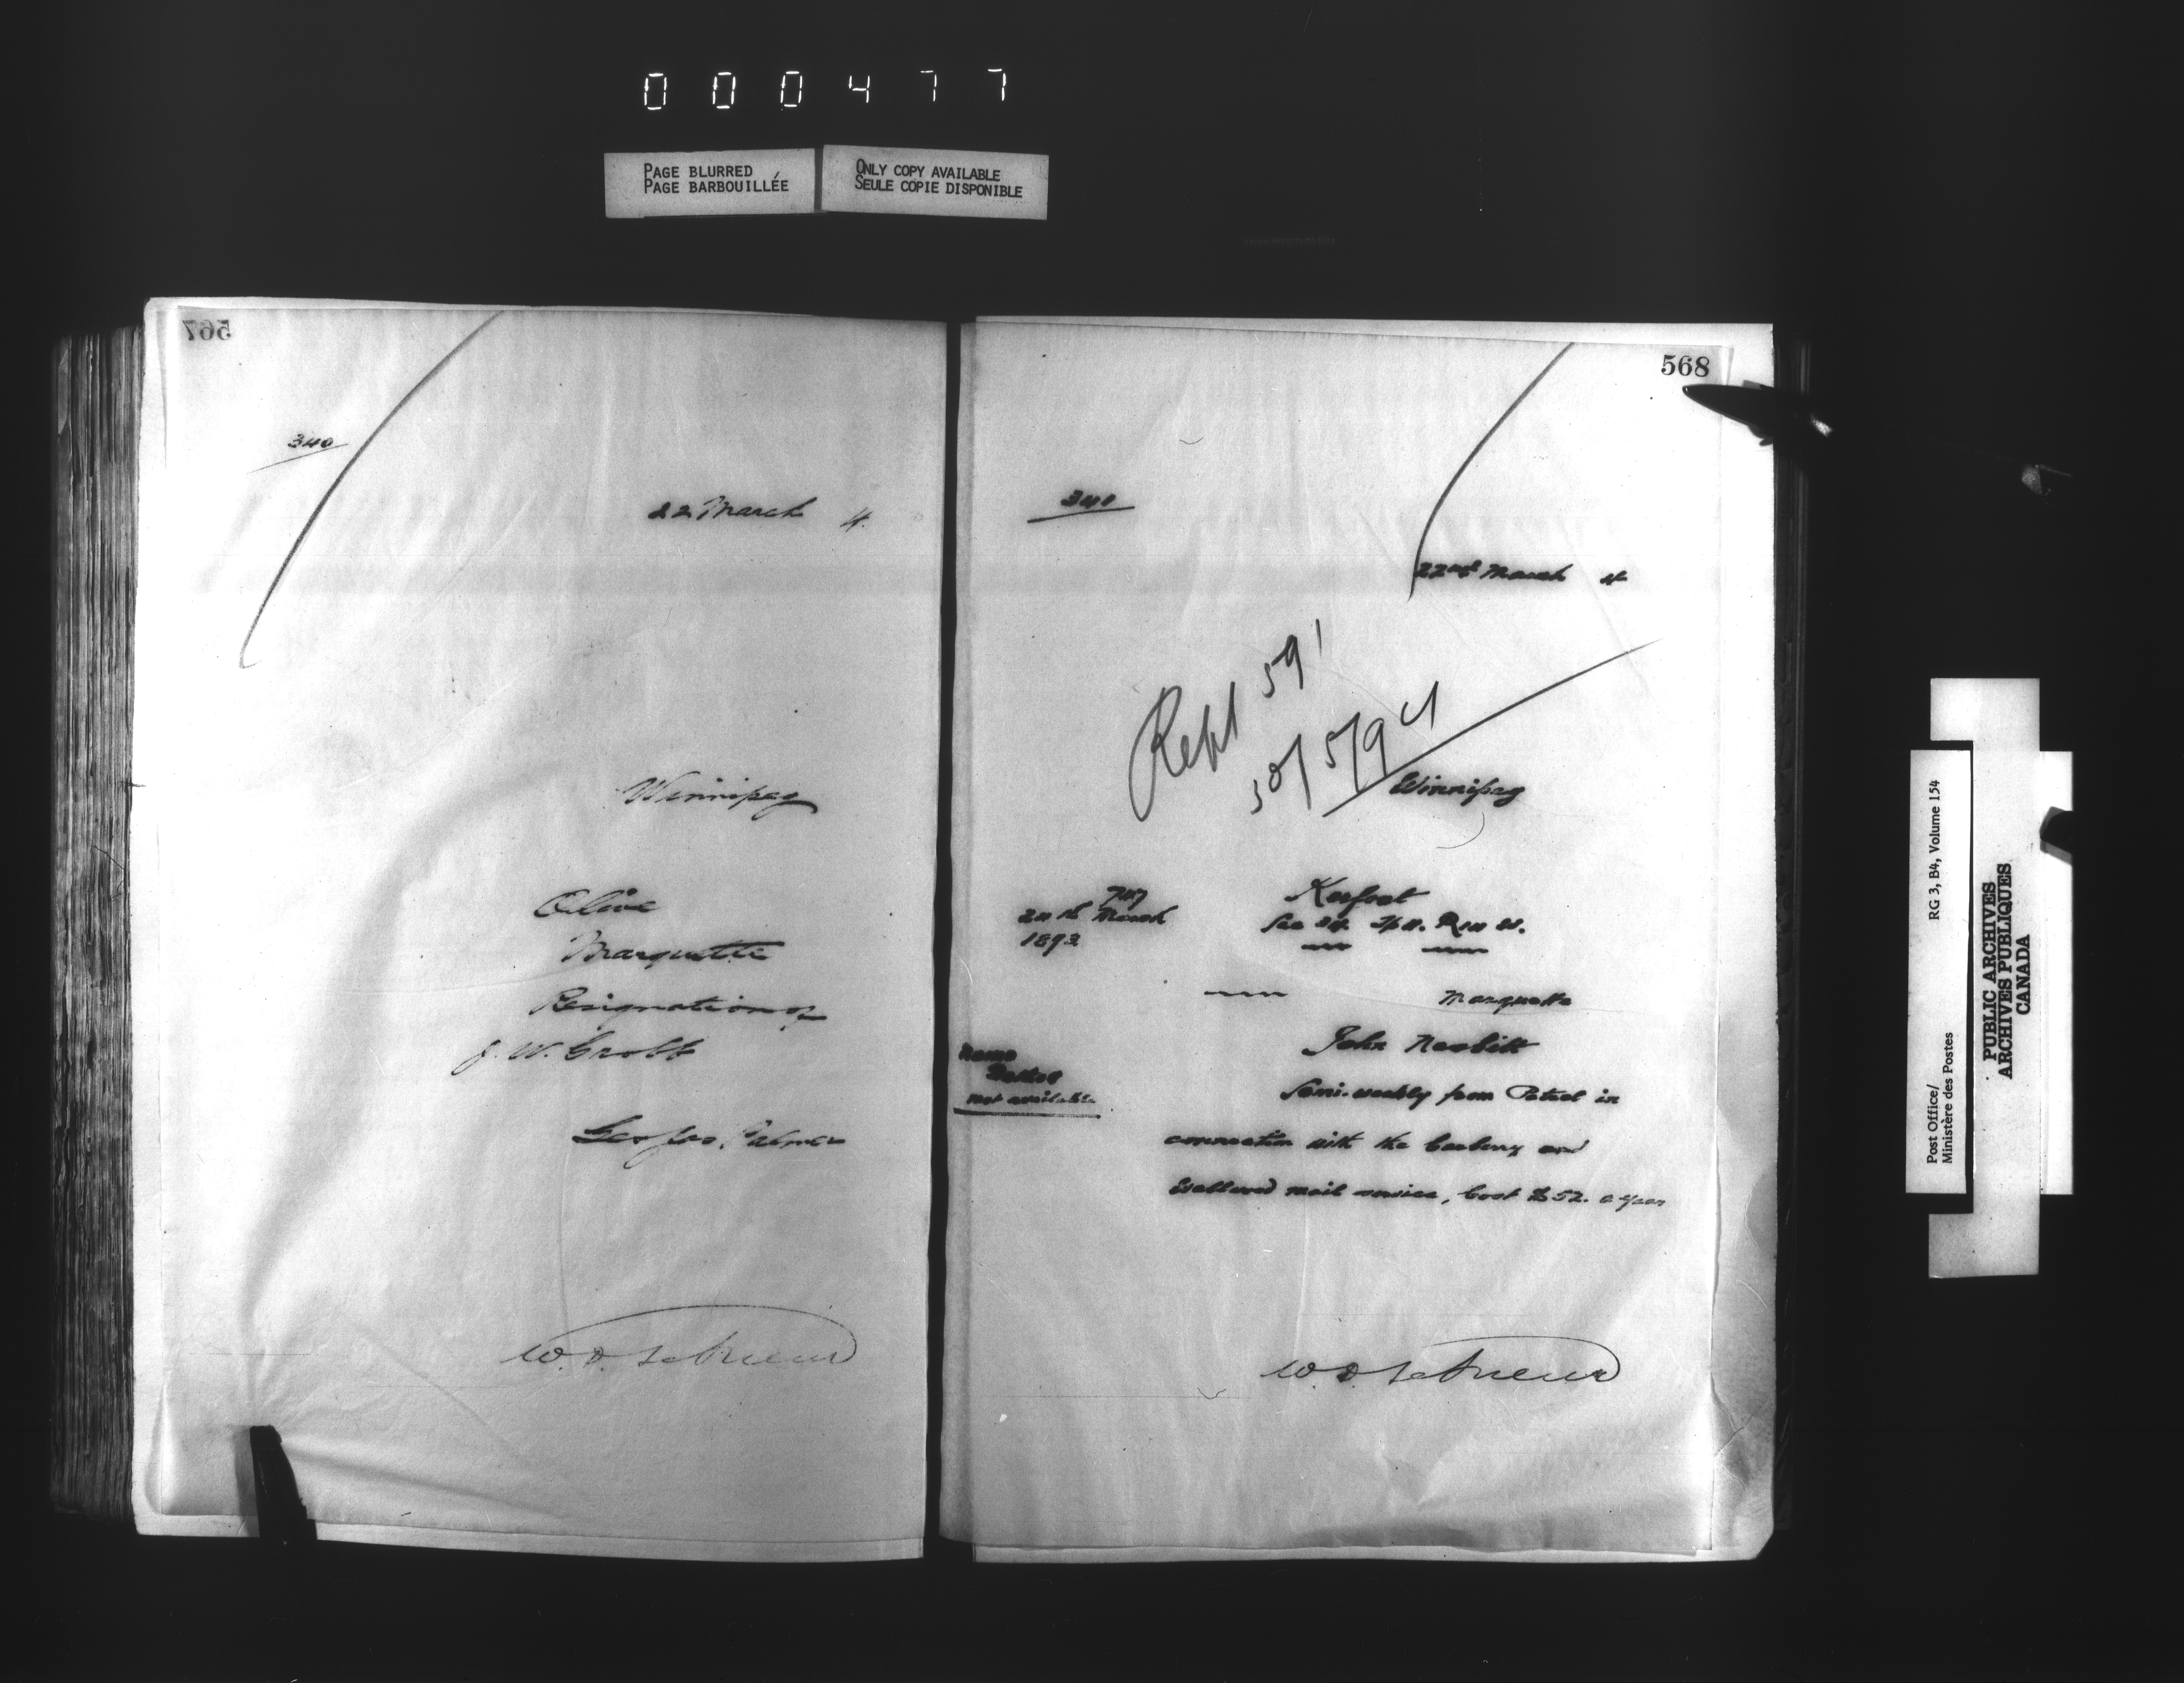 000477
PAGE BLURRED
PAGE BARBOUILLÉE
ONLY COPY AVAILABLE
SEULE COPIE DISPONIBLE
567
340
22 March 4.
Winnipeg
Olive
Marquette
Resignation of
J. W. Grobb
Geo Jas. Palmer
W. D. LeSueur
568
340
22nd March 4
Rept 591
30/5/94
Winnipeg
747
March
1893
Kerfoot
Sec
Marquette
John Nesbitt
Name
not available
Semi-weekly from Petrel in
connection with the Carberry and
Wellwood mail service, Cost $52. a year
W. D. LeSueur
Post Office/
Ministère des Postes
RG 3, B4, Volume 154
PUBLIC ARCHIVES
ARCHIVES PUBLIQUES
CANADA